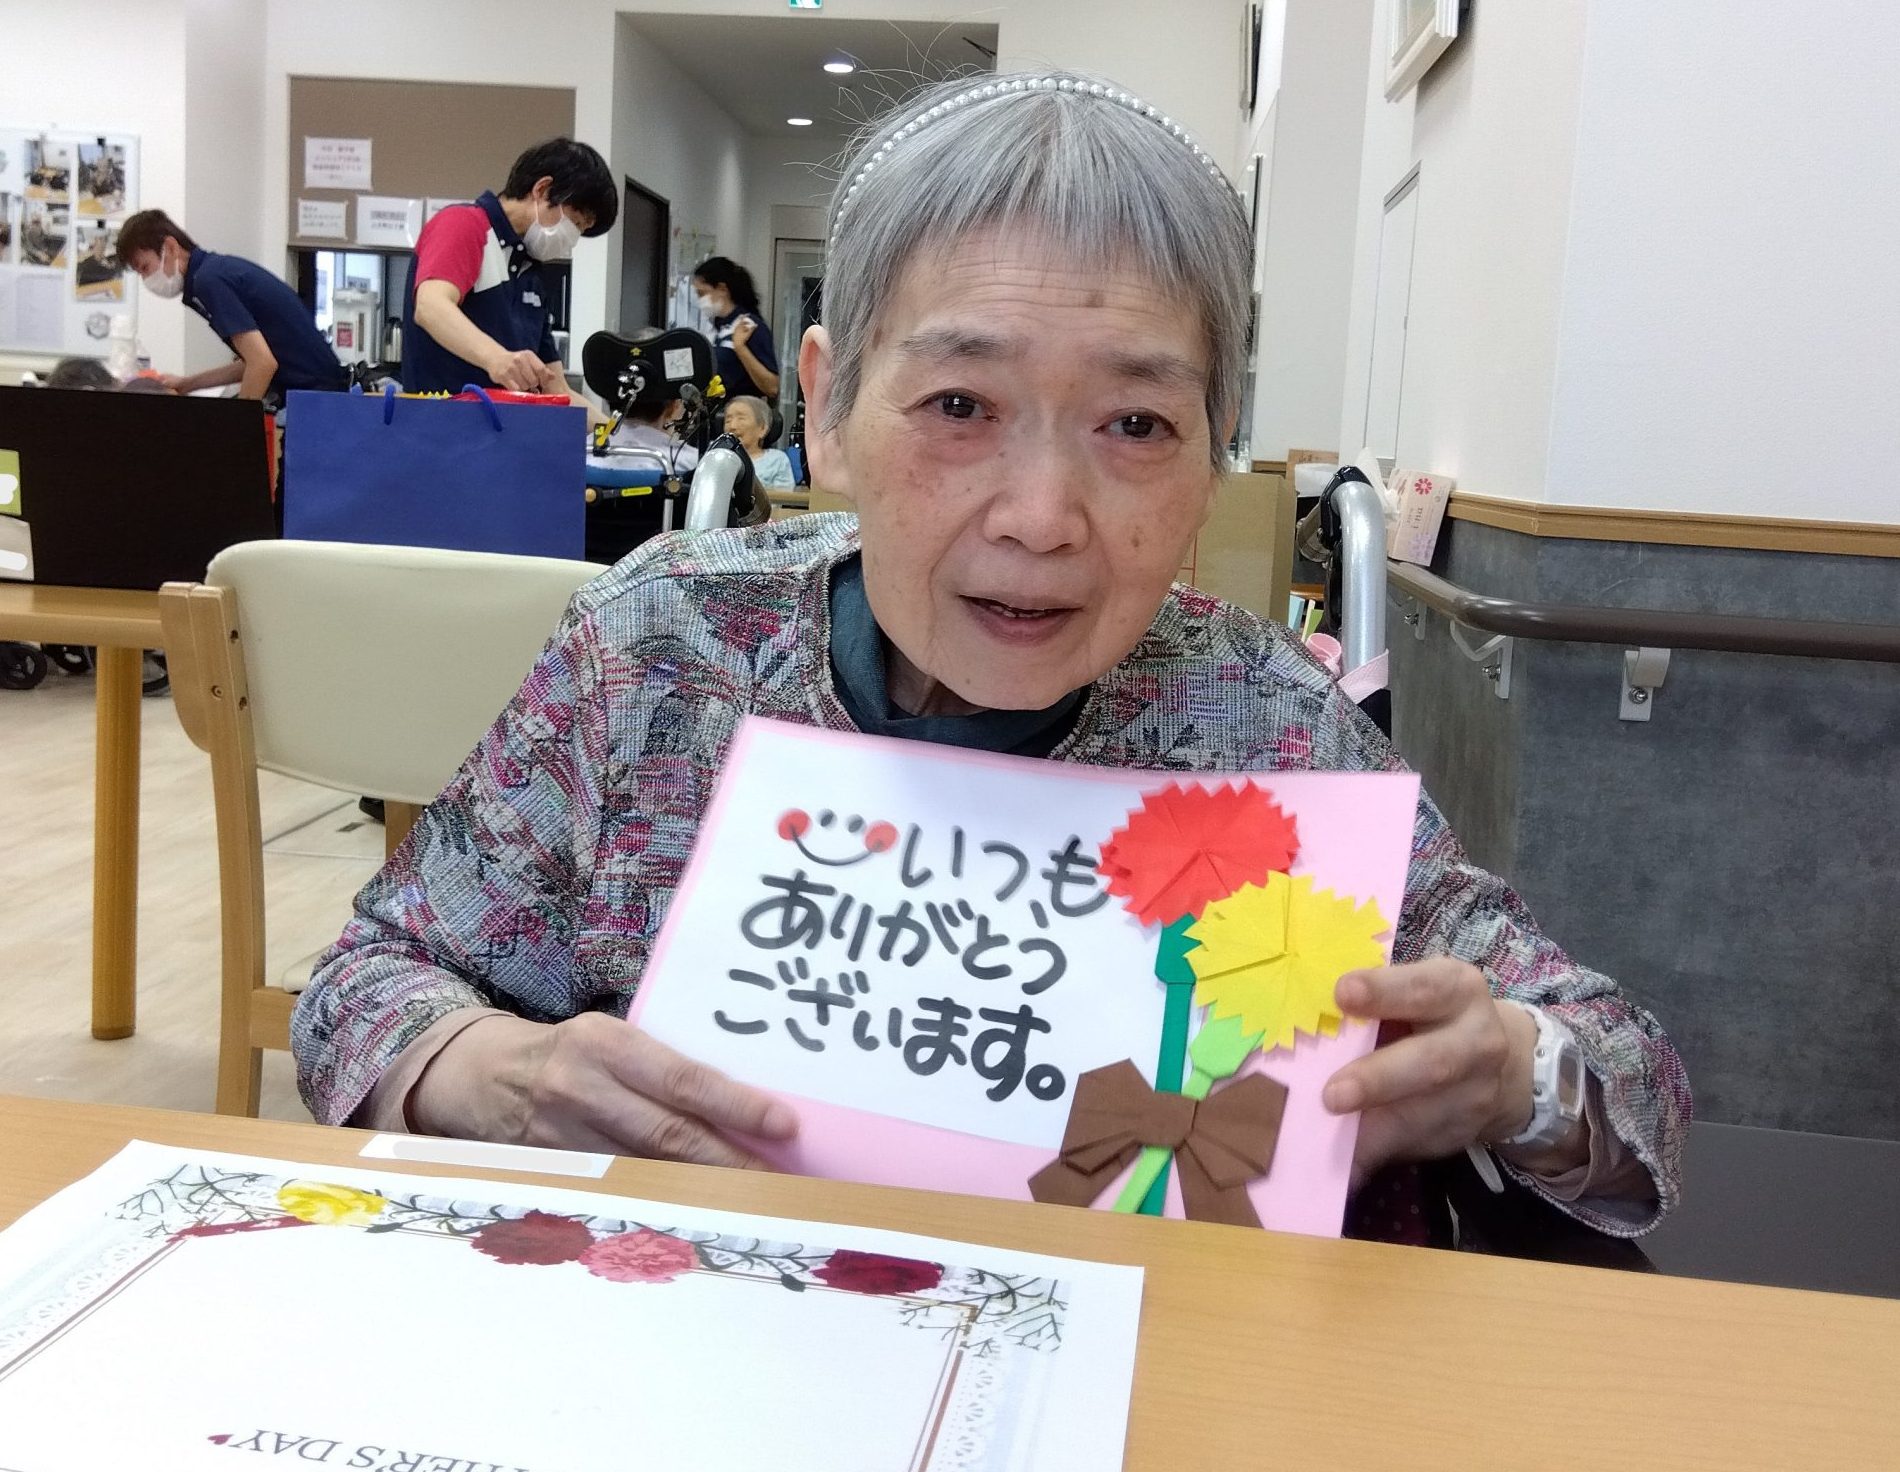 いつも
ありがとう
ございます。
THER'S DAY